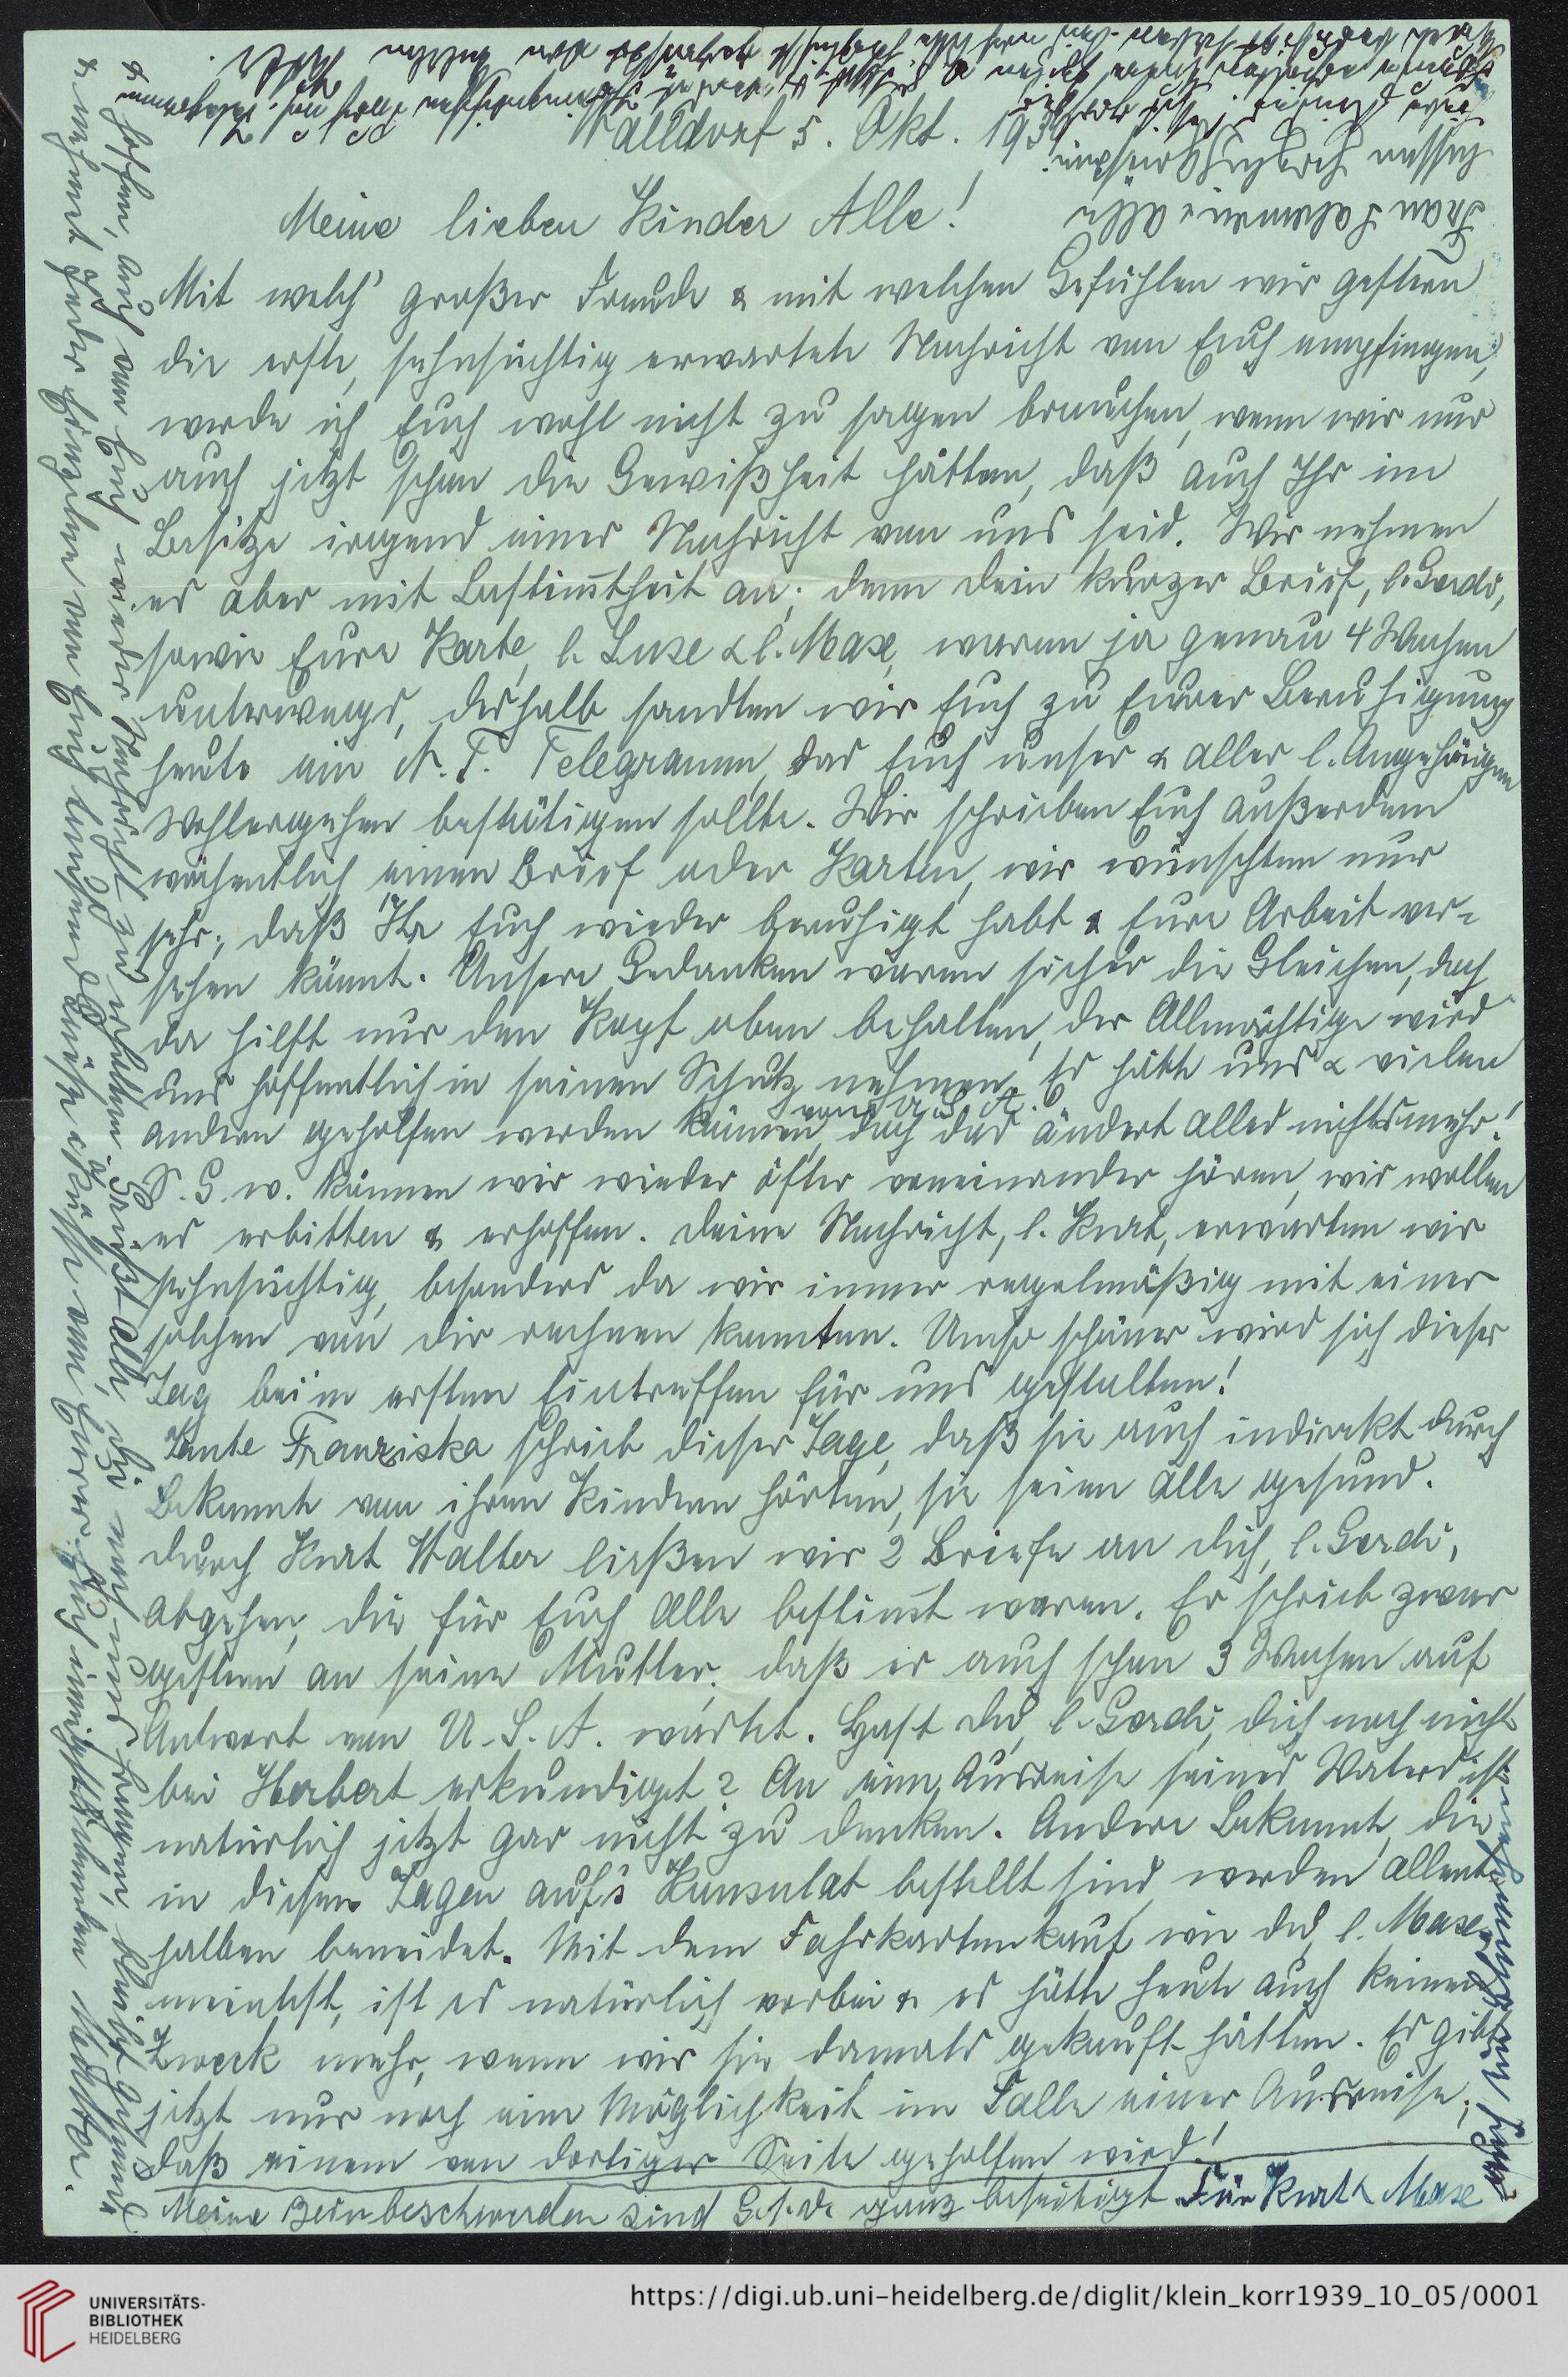 Walldorf 5. Okt. 1939
Meine lieben Kinder Alle!
Mit welch' großer Freude & mit welchen Gefühlen wir gestern
die erste, sehnsüchtig erwartete Nachricht von Euch empfingen,
werde ich Euch wohl nicht zu sagen brauchen, wenn wir nur
auch jetzt schon die Gewißheit hätten, daß auch Ihr im
Besitze irgend einer Nachricht von uns seid. Wir nehmen
es aber mit Bestim̄theit an; denn Dein kurzer Brief, l. Gerdi,
sowie Eure Karte, l. Luse & l. Max, waren ja genau 4 Wochen
unterwegs, deshalb sandten wir Euch zu Eurer Beruhigung
heute ein N. T. Telegramm, das Euch unser & aller l. Angehörigen
Wohlergehen bestätigen sollte. Wir schrieben Euch außerdem
wöchentlich einen Brief oder Karten, wir wünschten nur
sehr, daß Ihr Euch wieder beruhigt habt & Eure Arbeit ver-
sehen könnt. Unsere Gedanken waren sicher die Gleichen, doch
da hilft nur den Kopf oben behalten, der Allmächtige wird
uns hoffentlich in seinen Schutz nehmen. Es hätte uns & vielen
von U. S. A.
andern geholfen werden können, doch das ändert alles nichts mehr!
S. G. w. können wir wieder öfter voneinander hören, wir wollen
es erbitten & erhoffen. Deine Nachricht, l. Kurt, erwarten wir
sehnsüchtig, besonders da wir immer regelmäßig mit einer
solchen von Dir rechnen konnten. Umso schöner wird sich dieser
Tag bei'm ersten Eintreffen für uns gestalten!
Tante Franziska schrieb dieser Tage, daß sie auch indirekt durch
Bekannte von ihren Kindern hörten, sie seien alle gesund.
Durch Kurt Walter ließen wir 2 Briefe an Dich, l. Gerdi,
abgehen, die für Euch Alle bestim̄t waren. Er schrieb zwar
gestern an seine Mutter, daß er auch schon 3 Wochen auf
Antwort von U. S. A. wartet. Hast Du, l. Gerdi, Dich noch nicht
bei Herbert erkundigt? An eine Ausreise seines Vaters ist
natürlich jetzt gar nicht zu denken. Andere Bekannte, die
in diesen Tagen auf's Konsulat bestellt sind, werden allent-
halben beneidet. Mit dem Fahrkartenkauf, wie Du, l. Max,
meintest, ist es natürlich vorbei & es hätte heute auch keinen
Zweck mehr, wenn wir sie damals gekauft hätten. Es gibt
jetzt nur noch eine Möglichkeit im Falle einer Ausreise,
daß einem von dortiger Seite geholfen wird!
Meine Beinbeschwerden sind G. s. d. ganz beseitigt. Für Kurt & Max
& hoffen, auch von Euch wieder Nachricht zu erhalten. Grüßt alle, die nach uns fragen, bleibt gesund
& nehmt jeder Einzelne von Euch tausend Grüße & Küsse von Eurer Euch innigst liebenden Mutter.
Frau Salomon & alle
lassen herzlich grüßen.
UNIVERSITÄTS-
BIBLIOTHEK
HEIDELBERG
https://digi.ub.uni-heidelberg.de/diglit/klein_korr1939_10_05/0001